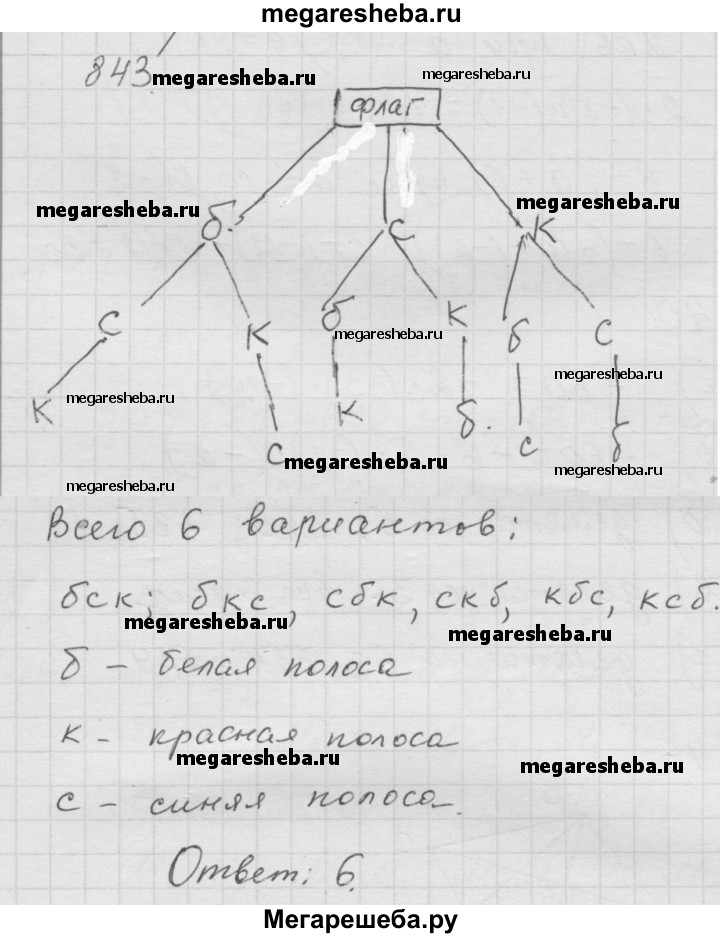 megaresheba.ru
843
megaresheba.ru
megaresheba.ru
флаг
megaresheba.ru
megaresheba.ru
б. с к
с к б к б с
megaresheba.ru
megaresheba.ru
к megaresheba.ru к б. с б
с megaresheba.ru
megaresheba.ru
megaresheba.ru
Всего 6 вариантов:
бск; бкс, сбк, скб, кбс, ксб.
megaresheba.ru
megaresheba.ru
б - белая полоса
к - красная полоса
megaresheba.ru
megaresheba.ru
с - синяя полоса.
Ответ: 6.
Мегарешеба.ру